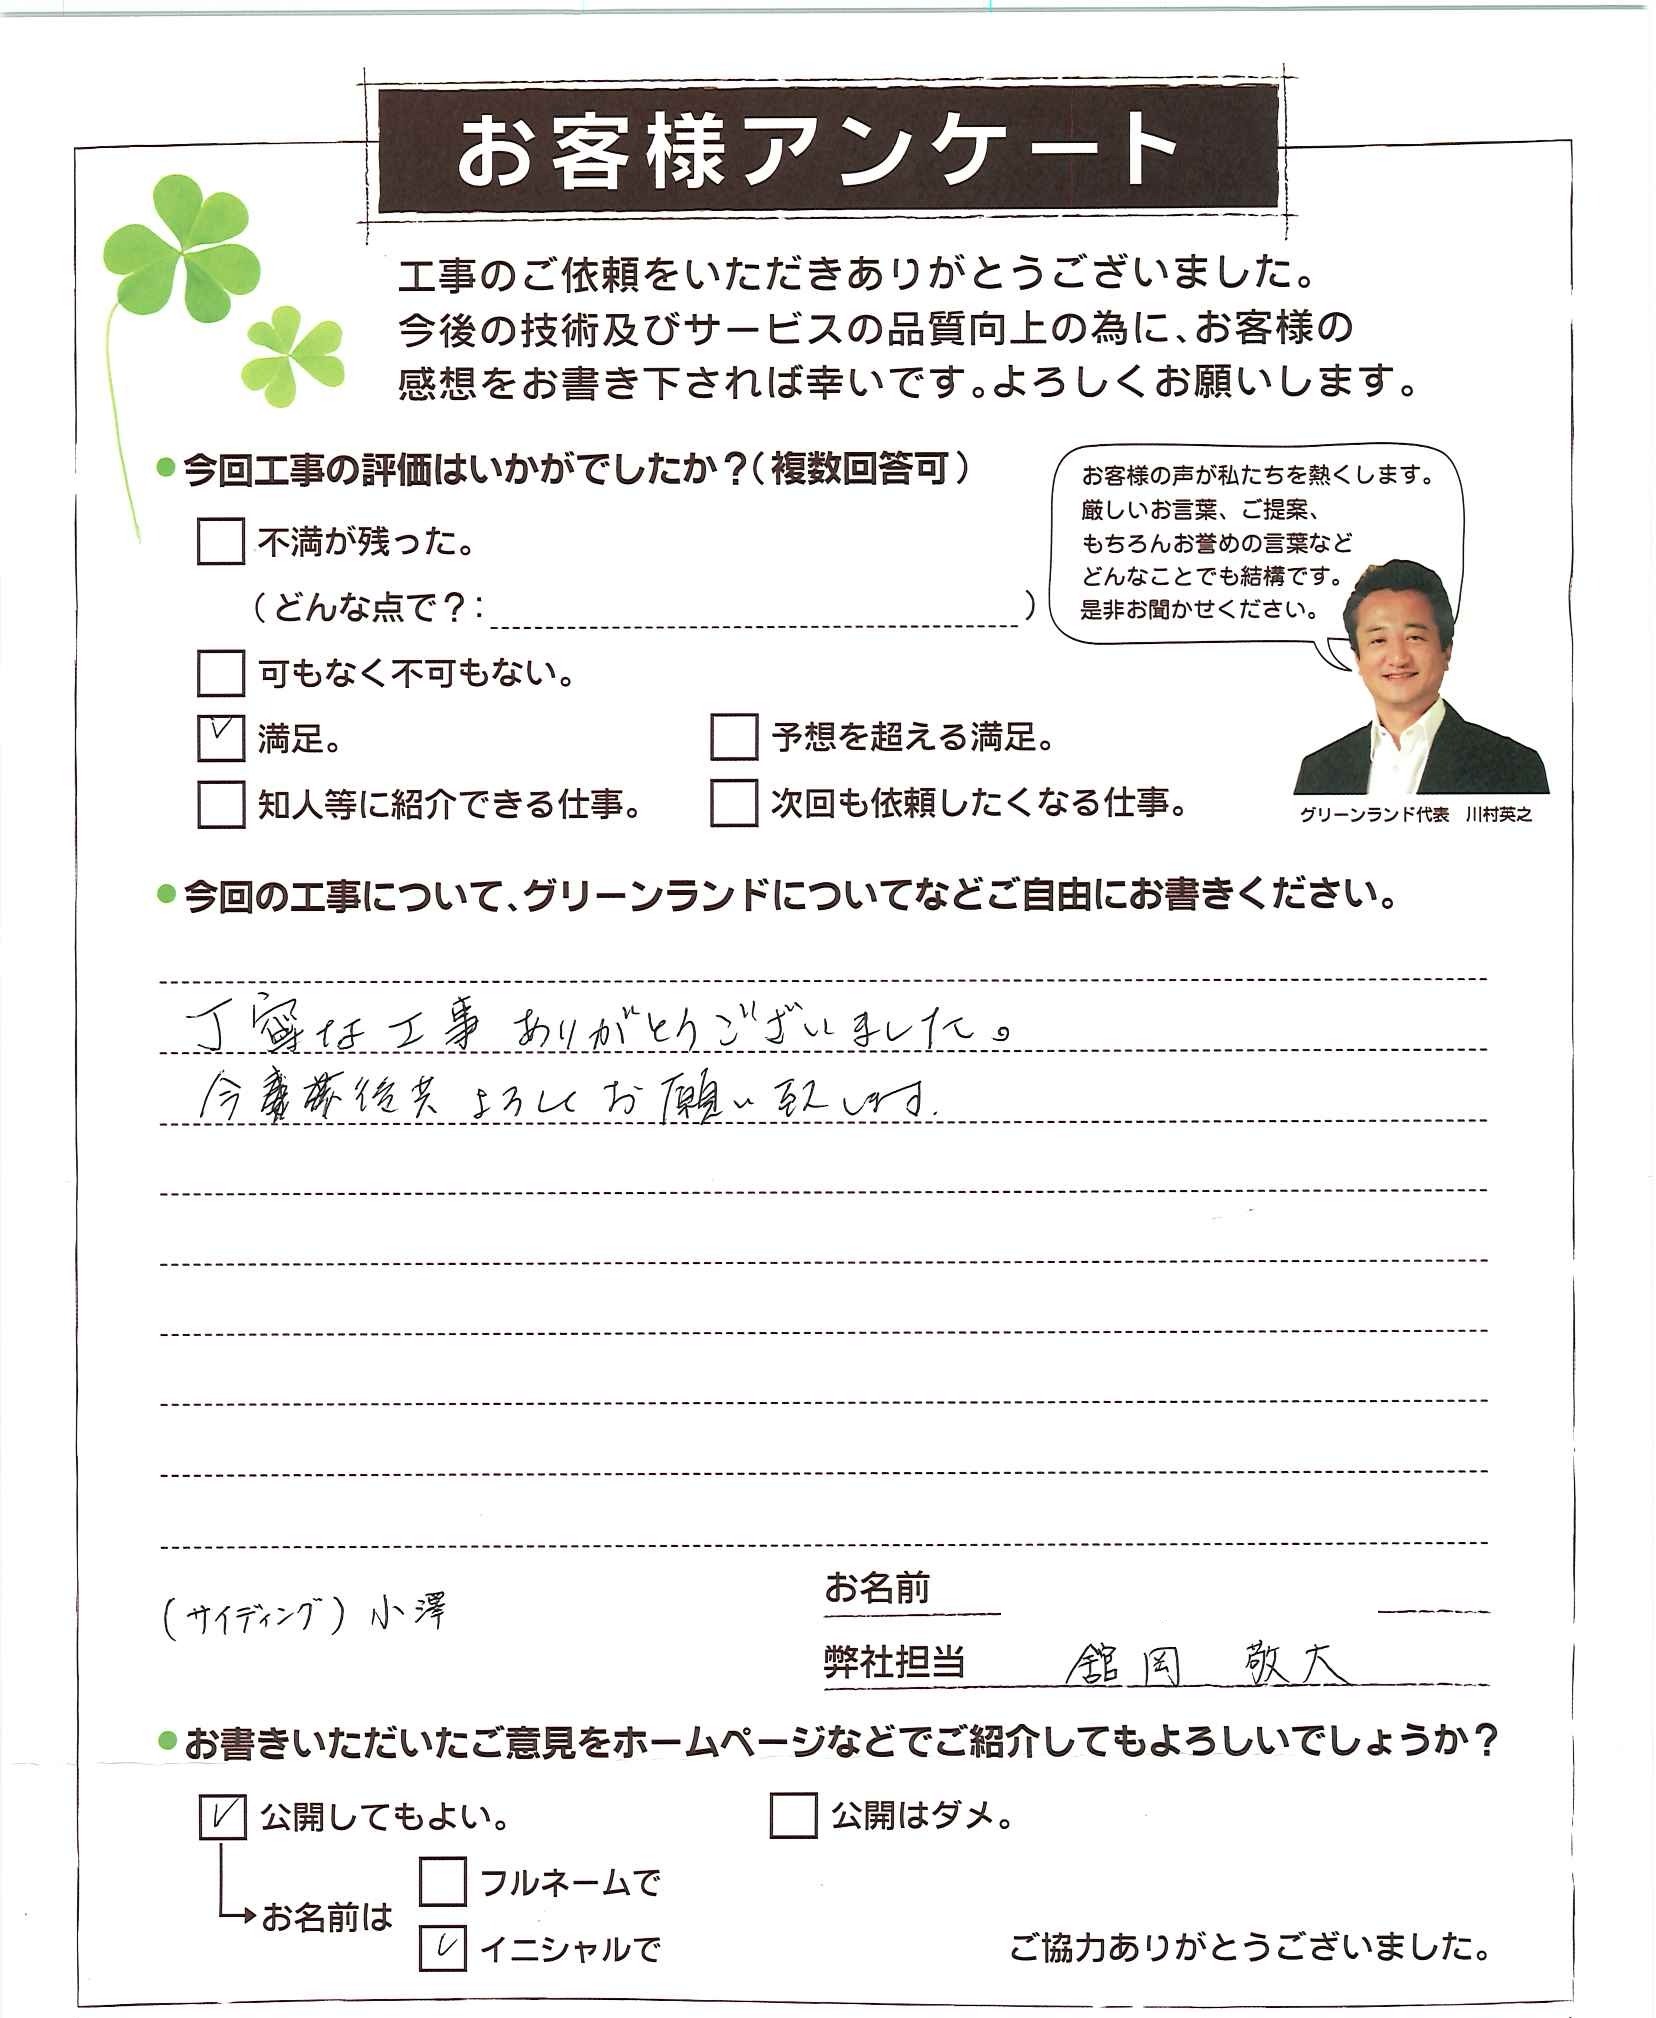 お客様アンケート
工事のご依頼をいただきありがとうございました。
今後の技術及びサービスの品質向上の為に、お客様の
感想をお書き下されば幸いです。よろしくお願いします。
●今回工事の評価はいかがでしたか？（複数回答可）
不満が残った。
（どんな点で？：）
可もなく不可もない。
満足。
予想を超える満足。
知人等に紹介できる仕事。
次回も依頼したくなる仕事。
お客様の声が私たちを熱くします。
厳しいお言葉、ご提案、
もちろんお誉めの言葉など
どんなことでも結構です。
是非お聞かせください。
グリーンランド代表 川村英之
●今回の工事について、グリーンランドについてなどご自由にお書きください。
丁寧な工事ありがとうございました。
今後共よろしくお願い致します.
(サイディング) 小澤
お名前
弊社担当 舘岡 敬大
●お書きいただいたご意見をホームページなどでご紹介してもよろしいでしょうか？
公開してもよい。
公開はダメ。
お名前は
フルネームで
イニシャルで
ご協力ありがとうございました。